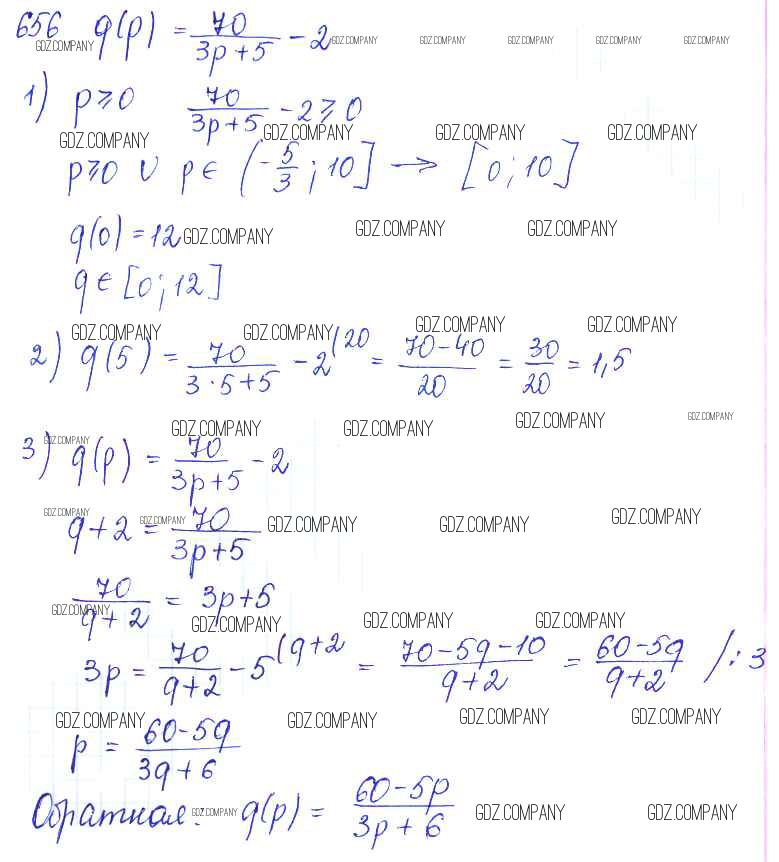 656 q(p) = 70/(3p+5) - 2
GDZ.COMPANY GDZ.COMPANY GDZ.COMPANY GDZ.COMPANY GDZ.COMPANY
1) p⩾0 70/(3p+5) - 2 ⩾ 0
GDZ.COMPANY GDZ.COMPANY GDZ.COMPANY GDZ.COMPANY
p⩾0 ∪ p∈ (-5/3; 10] → [0; 10]
q(0) = 12
GDZ.COMPANY GDZ.COMPANY GDZ.COMPANY
q ∈ [0; 12]
GDZ.COMPANY GDZ.COMPANY GDZ.COMPANY GDZ.COMPANY
2) q(5) = 70/(3·5+5) - 2^(20 = (70-40)/20 = 30/20 = 1,5
GDZ.COMPANY GDZ.COMPANY GDZ.COMPANY GDZ.COMPANY GDZ.COMPANY
3) q(p) = 70/(3p+5) - 2
GDZ.COMPANY GDZ.COMPANY GDZ.COMPANY GDZ.COMPANY GDZ.COMPANY
q+2 = 70/(3p+5)
70/(q+2) = 3p+5
GDZ.COMPANY GDZ.COMPANY GDZ.COMPANY GDZ.COMPANY
3p = 70/(q+2) - 5^(q+2 = (70-5q-10)/(q+2) = (60-5q)/(q+2) /:3
GDZ.COMPANY GDZ.COMPANY GDZ.COMPANY GDZ.COMPANY
p = (60-5q)/(3q+6)
Обратная: q(p) = (60-5p)/(3p+6)
GDZ.COMPANY GDZ.COMPANY GDZ.COMPANY